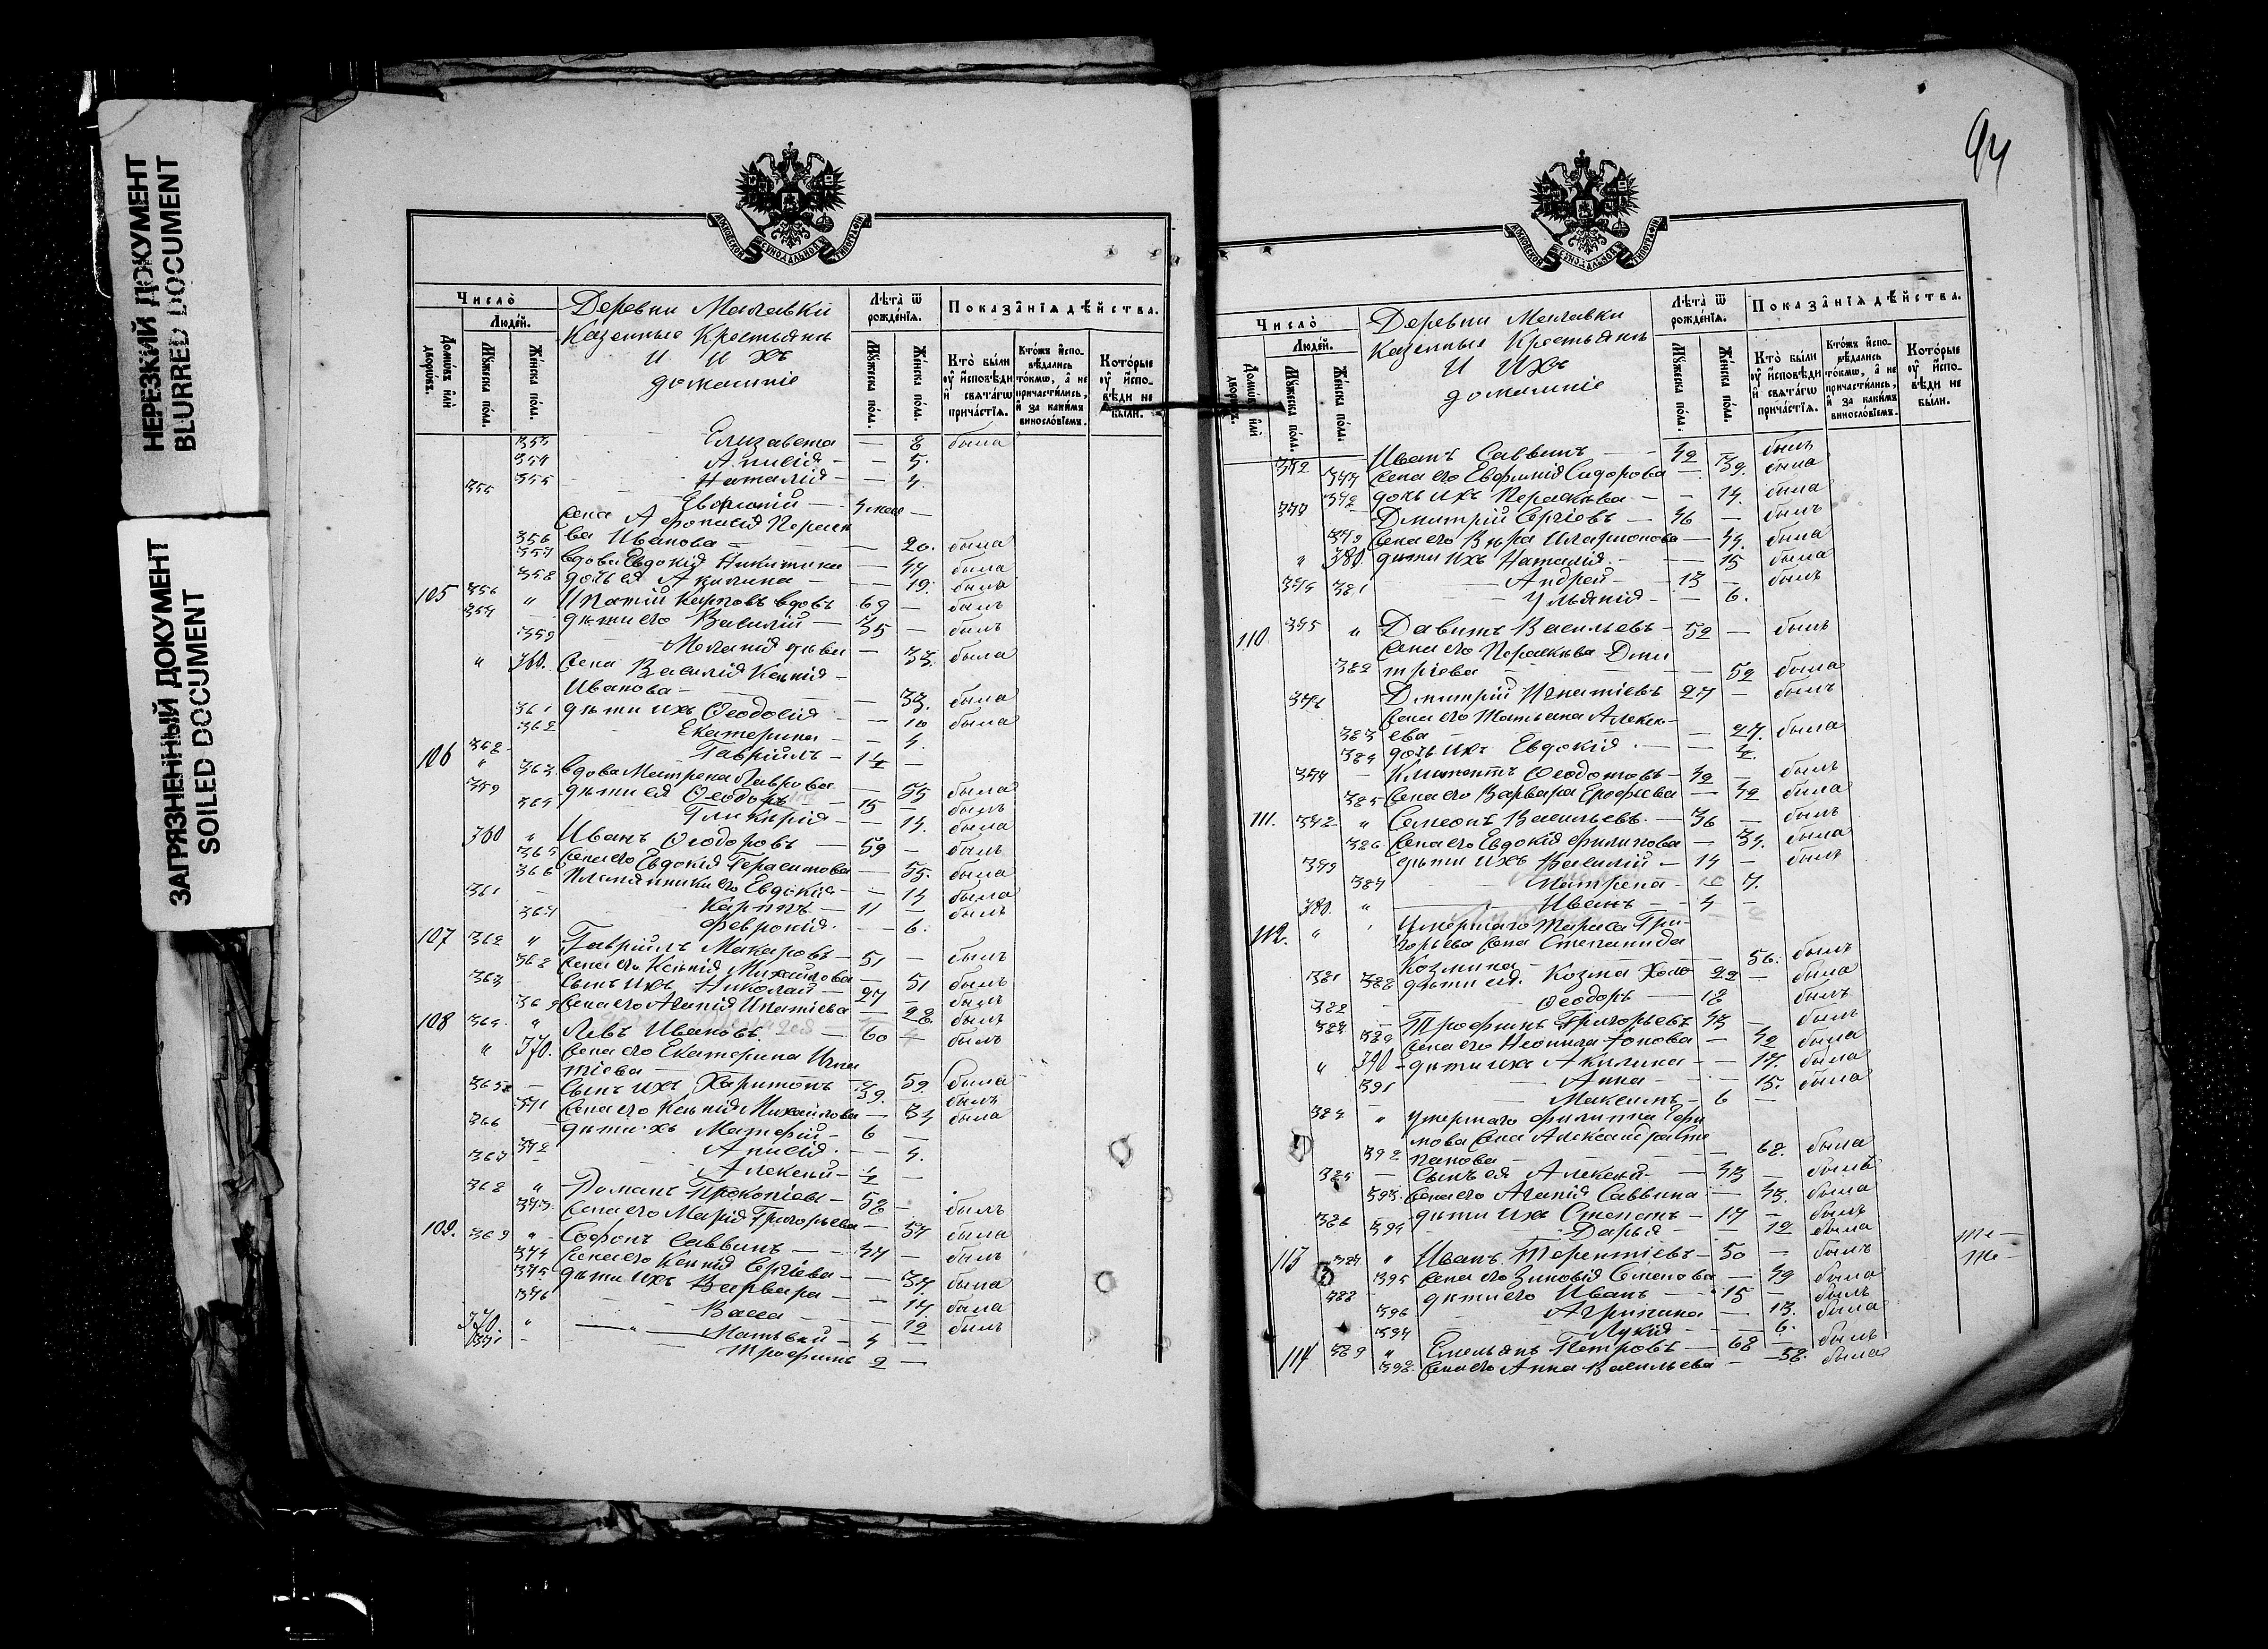 НЕРЕЗКИЙ ДОКУМЕНТ
BLURRED DOCUMENT
ЗАГРЯЗНЕННЫЙ ДОКУМЕНТ
SOILED DOCUMENT
МОСКОВСКОЙ СѴНОДАЛЬНОЙ ТИПОГРАФІИ
Число̀
Люде́й.
Домѡ́въ и҆лѝ дворѡ́въ.
Мꙋ́жеска по́ла.
Же́нска по́ла.
Деревни
Казенные Крестьяне
и ихъ
домашніе
Лѣ́та ѿ рожде́нїѧ.
Мꙋ́жеска по́ла.
Же́нска по́ла.
Показа̑нїѧ дѣ́йства.
Кто̀ бы́ли ᲂу҆ и҆сповѣ́ди и҆ свѧта́гѡ прича́стїѧ.
Кто́жъ и҆сповѣ́дались то́кмѡ, а҆ не причасти́лись, и҆ за каки́мъ виносло́вїемъ.
Кото́рые ᲂу҆ и҆сповѣ́ди не бы́ли.
353 Елизавета — 8 была
354 Анисія — 5.
355 Наталія — 4.
355 Евфимій —
Жена
356 ва Иванова — 20. была
357 вдова Евдокія Никитина — 47 была
358 дочь ея Акилина — 19. была
105 356 " Ипатій Карповъ вдовъ 69 — былъ
357 дѣти его Василій — 35 — былъ
359 Меланія дѣвка — 33. была
" 360. Жена Василія Ксенія
Иванова — 33. была
361 дѣти ихъ Ѳеодосія — 10 была
362 Екатерина — 4.
358 Гавріилъ —
106 " 363. вдова Матрена Лаврова — 55 была
359 дѣти ея Ѳеодоръ — 15 былъ
364 Гликерія — 14. была
360 " Иванъ Ѳеодоровъ — 59 — былъ
365 Жена его Евдокія Герасимова — 55. была
366 Племянники его Евдокія — 14 была
361 Карпъ — 11 — былъ
367 Феврокія. — 6.
107 362 " Гавріилъ Макаровъ — 51 — былъ
368 Жена его Ксенія Михайлова — 51 была
363 Сынъ ихъ Николай — 27 — былъ
369 Жена его Агапія Ипатіева — 28. была
108 364. " Левъ Ивановъ. — 60 — былъ
" 370. Жена его Екатерина Игна
тіева — 59 была
365 — Сынъ ихъ Харитонъ — 39. былъ
371 Жена его Ксенія Михайлова — 34 была
366 дѣти ихъ Матфей — 6 —
372 Анисія. — 4.
367 Алексѣй —
368 " Романъ Прокопіевъ — 58 — былъ
373. Жена его Марія Григорьева — 57 была
109. 369 " Софонъ Саввинъ — 37 — былъ
374 Жена его Ксенія Сергіева — 37. была
375 дѣти ихъ Варвара — 14 была
376 Васса — 12
370. " Матвей — 4 —
371 — Трофимъ 2 —
94
МОСКОВСКОЙ СѴНОДАЛЬНОЙ ТИПОГРАФІИ
Число̀
Люде́й.
Домѡ́въ и҆лѝ дворѡ́въ.
Мꙋ́жеска по́ла.
Же́нска по́ла.
Деревни
Казенные Крестьяне
и ихъ
домашніе
Лѣ́та ѿ рожде́нїѧ.
Мꙋ́жеска по́ла.
Же́нска по́ла.
Показа̑нїѧ дѣ́йства.
Кто̀ бы́ли ᲂу҆ и҆сповѣ́ди и҆ свѧта́гѡ прича́стїѧ.
Кто́жъ и҆сповѣ́дались то́кмѡ, а҆ не причасти́лись, и҆ за каки́мъ виносло́вїемъ.
Кото́рые ᲂу҆ и҆сповѣ́ди не бы́ли.
372 Иванъ Саввинъ — 42 былъ
377 Жена его Евфимія Сидорова — 39. была
378 дочь ихъ Параскева — 14. была
373 Дмитрій Сергіевъ — 46 — былъ
379 Жена его Вѣра Иларионова — 44. была
" 380. дѣти ихъ Наталія. — 15 была
374 Андрей — 13 — былъ
381 Ульянія — 6.
110 375 " Давитъ Васильевъ — 52 — былъ
Жена его Параскева Дми
382 тріева — 52 была
376 Дмитрій Игнатіевъ 27 — былъ
Жена его Татьяна Алексе-
383 ева — 27. была
384 дочь ихъ Евдокія. —
377 — Климентъ Ѳеодотовъ — 42 — былъ
385 Жена его Варвара Ерофеева — 42 была
111. 378 " Симеонъ Васильевъ. — 36 — былъ
386 Жена его Евдокія Филипова — 34. была
379 дѣти ихъ Василій — 14 — былъ
387 Матрена — 7.
380. " Иванъ — 4 —
112. " Умершаго Тараса Гри-
горьева Жена Степанида
388 Козмина — 56. была
381 дѣти ея. Козма 22 — былъ
382 Ѳеодоръ — 18 былъ
383 — Трофимъ Григорьевъ 43 — былъ
389 Жена его Неонила — 42 была
" 390 — дѣти ихъ Акилина — 17. была
391 Анна — 15. была
Максимъ — 6 —
384 " Умершаго Филиппа
Жена Александра
392 панова — 68. была
385 — Сынъ ея Алексѣй — 43 — былъ
393. Жена его Агапія Саввина — 43. была
386 дѣти ихъ Степанъ — 17 — былъ
394 Дарья — 12 была
113 387 " Иванъ Терентіевъ — 50 — былъ
395 Жена его Зиновія Семенова — 49 была
388 дѣти его Иванъ — 15 — былъ
396 Агрипина — 13. была
397 Лукія — 6.
114 389 " Емельянъ Петровъ — 68 — былъ
398. Жена его Анна Васильева — 58. была